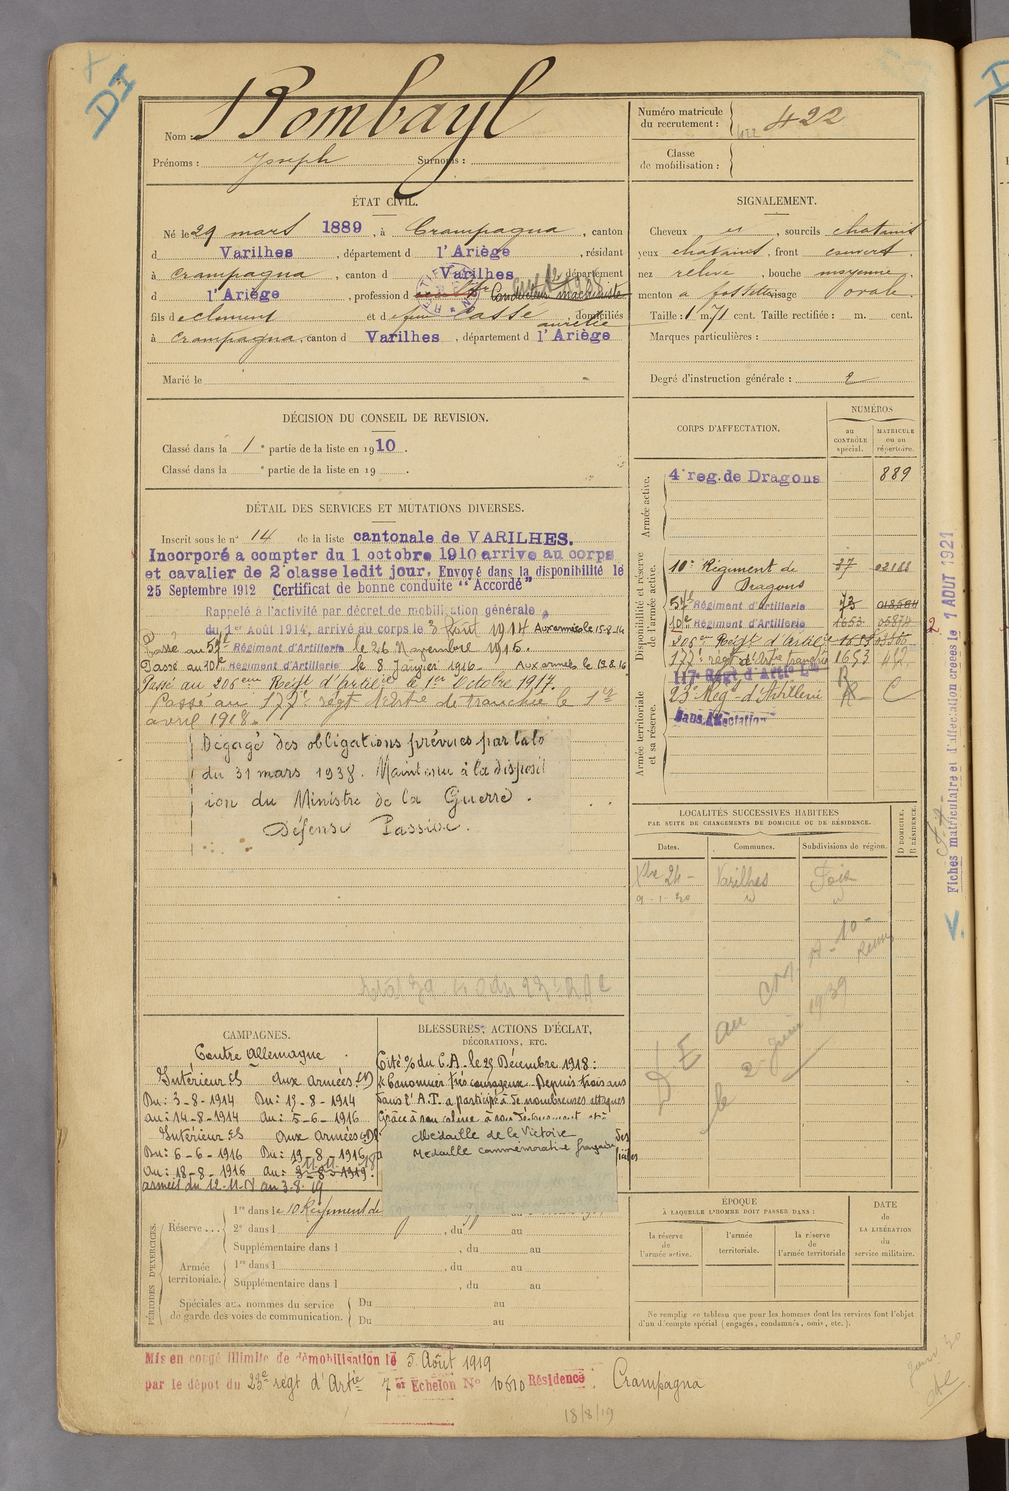 DI
Nom : Bombayl
Prénoms : Joseph Surnoms :
Numéro matricule du recrutement : 422 422
Classe de mobilisation :
ÉTAT CIVIL.
Né le 29 mars 1889, à Crampagna, canton
d Varilhes, département d l'Ariège, résidant
à Crampagna, canton d Varilhes, département
d l'Ariège, profession d Conducteur machiniste
fils de Clément et de Casse Aurélie, domiciliés
à Crampagna, canton d Varilhes, département d l'Ariège
Marié le
SIGNALEMENT.
Cheveux , sourcils chatains
yeux chatains, front couvert
nez relevé, bouche moyenne,
menton à fossette visage ovale.
Taille : 1 m. 71 cent. Taille rectifiée : m. cent.
Marques particulières :
Degré d'instruction générale : 2
DÉCISION DU CONSEIL DE REVISION.
Classé dans la 1e partie de la liste en 1910.
Classé dans la e partie de la liste en 19 .
DÉTAIL DES SERVICES ET MUTATIONS DIVERSES.
Inscrit sous le n° 14 de la liste cantonale de VARILHES.
Incorporé a compter du 1 octobre 1910 arrive au corps
et cavalier de 2e classe ledit jour. Envoyé dans la disponibilité le
25 Septembre 1912 Certificat de bonne conduite "Accordé"
Rappelé à l'activité par décret de mobilisation générale
du 1er Août 1914, arrivé au corps le 3 Août 1914 Aux armées le 15-8-14
Passé au 57e Régiment d'Artillerie le 26 Novembre 1915.
Passé au 10e Régiment d'Artillerie le 8 Janvier 1916. Aux armées le 19.8.16
Passé au 206eme Regt d'artilie le 1er Octobre 1917.
Passé au 177e régt d'Artie de tranchée le 1er
avril 1918.
Dégagé des obligations prévues par la lo
du 31 mars 1938. Maintenu à la disposit
ion du Ministre de la Guerre.
Défense Passive.
CORPS D'AFFECTATION.
NUMÉROS
au CONTRÔLE spécial.
MATRICULE ou au répertoire.
Armée active.
4e reg. de Dragons 889
Disponibilité et réserve de l'armée active.
10e Régiment de Dragons 37
57e Régiment d'Artillerie 73
10e Régiment d'Artillerie 1653
206eme Regt d'Artilie 1653
177e régt d'Artie tranchée 1653
117e Regt d'Artie
23e Regt d'Artillerie R C
Sans Affectation
Armée territoriale et sa réserve.
Fiches matriculaire et d'affectation créées le 1 AOUT 1921
LOCALITÉS SUCCESSIVES HABITÉES
PAR SUITE DE CHANGEMENTS DE DOMICILE OU DE RÉSIDENCE.
Dates. Communes. Subdivisions de région.
D DOMICILE. R RÉSIDENCE.
Xbre 24 Varilhes Foix
9-1-30
CAMPAGNES.
Contre Allemagne
Intérieur CS Aux Armées CD
Du : 3-8-1914 Du : 15-8-1914
au : 14-8-1914 Au : 5-6-1916
Intérieur CS Aux armées CD
Du : 6-6-1916 Du : 19-8-1916
Au : 18-8-1916 Au : 3-8-1919
armées du 12-11-18 au 3.8.19
BLESSURES, ACTIONS D'ÉCLAT,
DÉCORATIONS, ETC.
Cité % du C.A. le 25 Décembre 1918 :
"Canonnier très courageux. Depuis trois ans
dans l'A.T. a participé à de nombreuses attaques
Grâce à son calme à son dévouement
Médaille de la Victoire
Médaille commémorative française
PÉRIODES D'EXERCICES.
Réserve ... 1re dans le 10 Régiment de
2e dans l , du au
Supplémentaire dans l , du au
Armée territoriale. 1re dans l , du au
Supplémentaire dans l , du au
Spéciales aux hommes du service de garde des voies de communication. Du au
Du au
ÉPOQUE
À LAQUELLE L'HOMME DOIT PASSER DANS :
la réserve de l'armée active.
l'armée territoriale.
la réserve de l'armée territoriale
DATE de LA LIBÉRATION du service militaire.
Ne remplir ce tableau que pour les hommes dont les services font l'objet
d'un décompte spécial (engagés, condamnés, omis, etc.).
Mis en congé illimité de démobilisation le 5 Août 1919
par le dépôt du 23e regt d'Artie 7 er Echelon N° 10610 Résidence : Crampagna
18/8/19